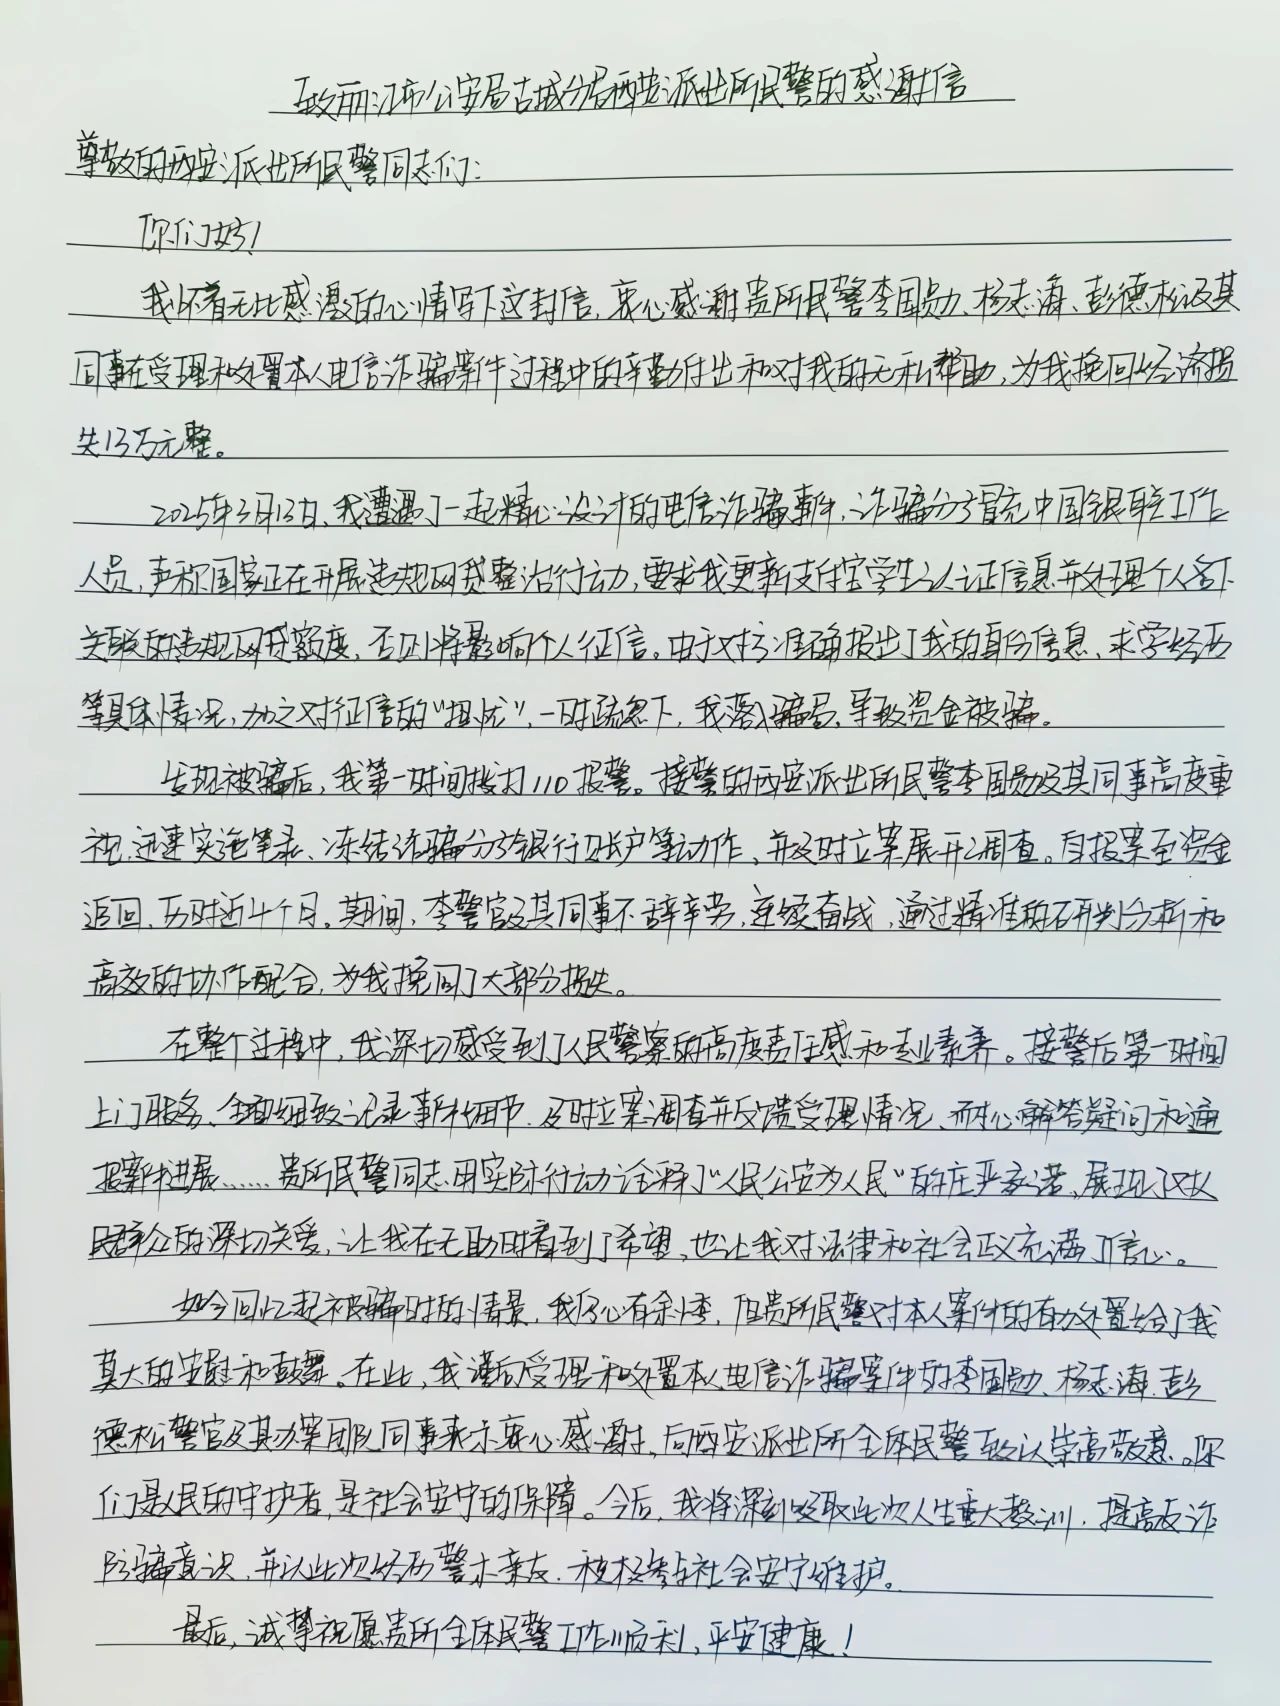 致丽江市公安局古城分局西安派出所民警的感谢信
尊敬的西安派出所民警同志们:
你们好!
我怀着无比感激的心情写下这封信,衷心感谢贵所民警李国勋、杨志海、彭德松及其
同事在受理和处置本人电信诈骗案件过程中的辛勤付出和对我的无私帮助,为我挽回经济损
失13万元整。
2025年3月13日,我遭遇了一起精心设计的电信诈骗事件,诈骗分子冒充中国银联工作
人员,声称国家正在开展违规网贷整治行动,要求我更新支付宝学生认证信息并处理个人名下
关联的违规网贷额度,否则将影响个人征信。由于对方准确报出了我的身份信息、求学经历
等具体情况,加之对征信的“担忧”,一时疏忽下,我落入骗局,导致资金被骗。
发现被骗后,我第一时间拨打110报警。接警的西安派出所民警李国勋及其同事高度重
视,迅速实施笔录、冻结诈骗分子银行账户等动作,并及时立案展开调查。自报案至资金
追回,历时近4个月。期间,李警官及其同事不辞辛劳,连续奋战,通过精准的研判分析和
高效的协作配合,为我挽回了大部分损失。
在整个过程中,我深切感受到了人民警察的高度责任感和专业素养。接警后第一时间
上门服务、全面细致记录事件细节、及时立案调查并反馈受理情况、耐心解答疑问和通
报案件进展……贵所民警同志用实际行动诠释了“人民公安为人民”的庄严承诺,展现了对人
民群众的深切关爱,让我在无助时看到了希望,也让我对法律和社会正义充满了信心。
如今回忆起被骗时的情景,我仍心有余悸,但贵所民警对本人案件的有力处置给了我
莫大的安慰和鼓舞。在此,我谨向受理和处置本人电信诈骗案件的李国勋、杨志海、彭
德松警官及其办案团队同事表示衷心感谢,向西安派出所全体民警致以崇高敬意。你
们是人民的守护者,是社会安宁的保障。今后,我将深刻吸取此次人生重大教训,提高反诈
防骗意识,并以此次经历警示亲友,积极参与社会安宁维护。
最后,诚挚祝愿贵所全体民警工作顺利,平安健康!